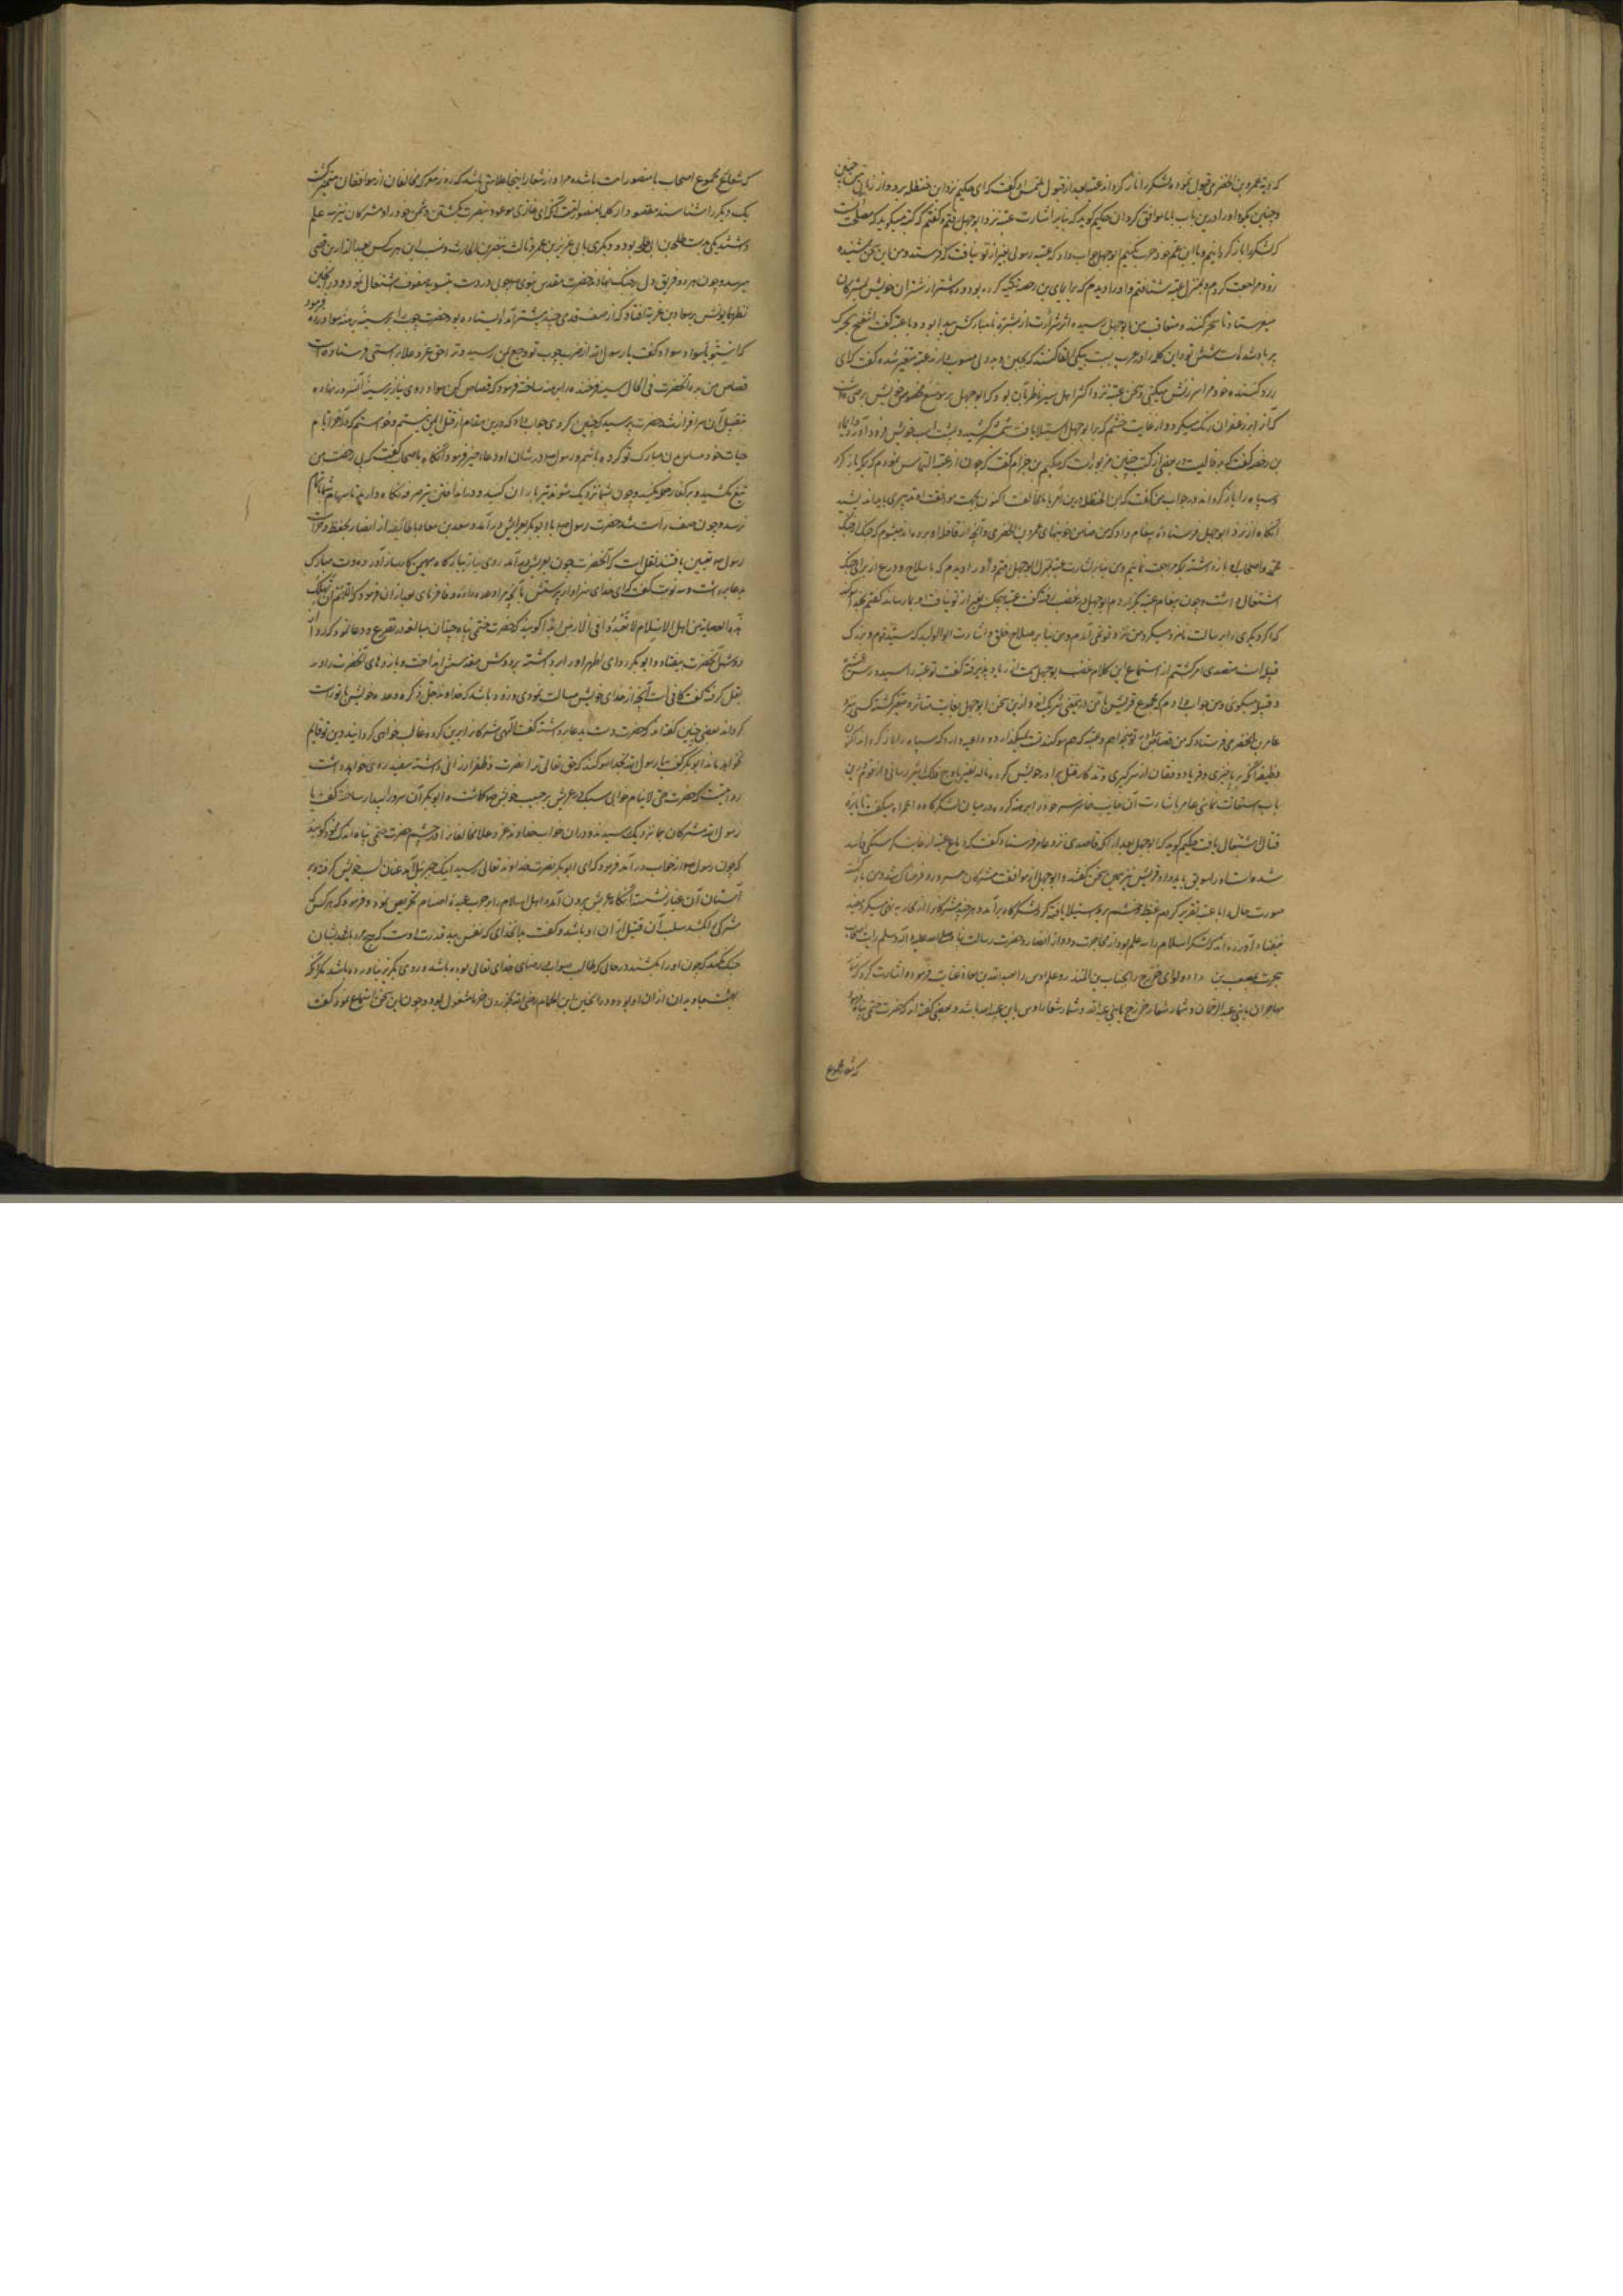 که دیه عمرو بن الحضرمی قبول نموده لشکر را باز گرداند عتبه بعد از قبول ملتمس او گفت که ای حکیم نزد ابن حنظله برو و از زبان من چنین
و چنین بگو و او را درین باب با ما موافق گردان حکیم گوید که بنابر اشارت عتبه نزد ابوجهل رفتم و گفتم که عتبه میگوید که مصلحت
که لشکر را باز گردانیم و با ابن عم خود حرب نکنیم ابوجهل جواب داد که عتبه رسولی بغیر از تو نیافت که فرستد و من این سخن شنیده
زود مراجعت کردم و بمنزل عتبه شتافتم و او را دیدم که بر ایمای بن رحضه تکیه کرده بود و ده شتر از شتران خویش بمشرکان
میفرستاد تا نحر کنند و متعاقب من ابوجهل رسیده اثر شرارت از بشره نامبارکش پیدا بود و با عتبه گفت انتفخ سحرک
پر باد شده است شش تو و این کلمه را در عرب نسبت بکسی القا کنند که بجبن و بددلی منسوب دارند عتبه متغیر شده گفت که ای
زرد کننده خود مرا سرزنش میکنی و سخن عتبه نزد اکثر اهل سیر ناظر بآن بود که ابوجهل بر موضع مخصوص خویش برصی داشت
که آنرا بزعفران رنگ میکرد و از غایت خشم که بر ابوجهل استیلا یافت شمشیر کشیده بر پشت اسب خویش فرود آورد و ایماء
بن رحضه گفت که بد فالیست و در بعضی از کتب چنین مزبورست که حکیم بن حزام گفت که چون از عتبه التماس نمودم که لشکر باز گردد
و سپاه را باز گرداند در جواب من گفت که ابن الحنظله درین امر با ما مخالفت
آنگاه از نزد ابوجهل فرستاده پیغام داد که من ضامن خونبهای عمرو بن الحضرمی و آنچه از قافله او برده اند میشوم که جنگ
محمد و اصحاب او باز داشته بمکه مراجعت نمائیم و من بنابر اشارت عتبه بمنزل ابوجهل رفتم و او را دیدم که با سلاح و درع از برای جنگ
اشتغال داشت و چون پیغام عتبه بگزاردم ابوجهل در غضب رفته گفت عتبه هیچکس بغیر از تو نیافت
که اگر دیگری را برسالت نامزد میکرد من نزد تو نمی آمدم و من بنابر صلاح خلق و اشارت ابو الولید که سید قوم و بزرگ
قبیله است متصدی امر گشتم از استماع این کلام غضب ابوجهل سمت ازدیاد پذیرفته گفت تو عتبه را سید
و قبیله میگوی و من جواب دادم که مجموع قریش با من درین معنی شریک اند و ازین سخن ابوجهل بغایت متأثر و متغیر گشته کسی نزد
عامر بن الحضرمی فرستاد که من قصاص خون برادر تو میخواهم و عتبه که هم سوگند تست نمیگذارد و داعیه دارد که سپاه را باز گرداند اکنون
وظیفه آنکه برپا خیزی و فریاد و فغان از سر گیری و تذکار قتل برادر خویش کرده ناله نفیر باوج فلک اثیر رسانی و از قوم درین
باب استعانت نمائی عامر باشارت آن خایب خاسر سر خود را برهنه کرده در میان لشکرگاه وا عمراه میگفت تا نایره
قتال اشتعال یافت حکیم گوید که ابوجهل بعد از آنکه قاصدی نزد عامر فرستاد گفت که دماغ عتبه از غایت گرسنگی خالی
شده است او را سویق بدهید و قریش نیز همین سخن گفتند و ابوجهل از موافقت مشرکان مسرور و فرحناک شد و من بازگشته
صورت حال را با عتبه تقریر کردم غیظ و خشم برو استیلا یافته گرد لشکرگاه برآمد و هر چند مشرکان را از محاربه نهی میکرد مفید
نیفتاد آورده اند که لشکر اسلام را سه علم بود از مهاجرت و دو از انصار و حضرت رسالت پناه صلی الله علیه و آله و سلم رایت اصحاب
هجرت بمصعب بن داد و لوای خزرج را بحباب بن المنذر و علم اوس را بسعد بن معاذ عنایت فرموده اشارت کرد که شعار
مهاجران یا بنی عبد الرحمان و شعار خزرج یا بنی عبد الله و شعار اوس یا بنی عبید الله باشد و بعضی گفته اند که حضرت ختمی پناه فرمود
که شعار مجموع
که شعار مجموع اصحاب یا منصور امت باشد و مراد از شعار اینجا علامتی باشد که در زمره که مخالفان از موافقان متمیز گشته
یک دیگر را شناسند و مقصود از کلمه یا منصور امت آنکه ای غازی موعود بنصرت بکشتن دشمن خود را و مشرکان نیز سه علم
داشتند یکی بدست طلحه بن ابی طلحه بود و دیگری بابی عزیز بن عمیر و ثالث بنضر بن الحارث و نسب این هر سه کس بعبد الدار بن قصی
میرسد و چون هر دو فریق دل بر جنگ نهادند حضرت مقدس نبوی چوبی در دست بتسویه صفوف اشتغال نمود و در آن حین
نظر همایونش بر سواد بن غزیه افتاد که از صف قدمی چند پیشتر آمده ایستاده بود حضرت چوب را بر سینه برهنه سواد زده فرمود
که استو یا سواد سواد گفت یا رسول الله از ضرب چوب تو وجع بمن رسید و ترا حق عز و علا براستی فرستاده است
قصاص من بده آنحضرت فی الحال سینه فرخنده را برهنه ساخته فرمود که قصاص کن سواد روی نیاز بر سینه آن سرور نهاده
بتقبیل آن سرافراز شد حضرت پرسید که چرا چنین کردی جواب داد که درین مقام از قتل ایمن نیستم و خواستم که در آخر ایام
حیات خود مساس بدن مبارک تو کرده باشم و رسول در شان او دعاء خیر فرمود و آنگاه باصحاب گفت که بی رخصت من
تیغ نکشید و بر کفار حمله نکنید و چون بشما نزدیک شوند تیر باران کنید و در انداختن تیر صرفه نگاه دارید تا سهام شما تمام
نرسد و چون صف راست شد حضرت رسول با ابوبکر بعریش درآمد و سعد بن معاذ با طایفه از انصار بحفظ و حراست
رسول تعیین یافتند نقل است که آنحضرت چون بعریش درآمد روی نیاز ببارگاه مهیمن کارساز آورده و دست مبارک
بدعا برداشت و سه نوبت گفت که ای خدای سزاوار پرستش بآنچه مرا وعده داده وفا فرمای و بعد از آن فرمود که اللهم ان تهلک
هذه العصابة من اهل الاسلام لا تعبد فی الارض ابدا گویند که حضرت ختمی پناه چندان مبالغه در تضرع و دعا نمود که رداء
دوش آنحضرت بیفتاد و ابوبکر ردای اطهر او را برداشته بر دوش مقدسش انداخت و بازوهای آنحضرت را در
بغل گرفته گفت کافی است آنچه از خدای خویش مسالت نمودی و زود باشد که خداوند عز و جل ذکره وعده خویش با تو راست
گرداند بعضی چنین گفته اند که حضرت دست بدعا برداشته گفت الهی مشرکان را برین گروه غالب خواهی گردانید دین تو قایم
نخواهد ماند ابوبکر گفت یا رسول الله بخدا سوگند که حق تعالی ترا نصرت و ظفر ارزانی داشته سفید روی خواهد داشت
روایتست که حضرت خیر الانام خوابی سبک در عریش بر جبین خویش گماشت و ابوبکر آن سرور را بیدار ساخته گفت یا
رسول الله مشرکان بما نزدیک رسیدند و در آن خواب خداوند عز و علا مخالفان را در چشم حضرت ختمی پناه اندک نمود گویند
که چون رسول از خواب درآمد فرمود که ای ابوبکر نصرت خداوند تعالی رسید اینک جبرئیل آمد عنان اسب خویش گرفته و بر
آستان آن غبار نشسته آنگاه از عریش بیرون آمده اهل اسلام را بر حرب عبده اصنام تحریص نمود و فرمود که هر کس که
مشرکی را بکشد سلب آن قتیل از آن او باشد و گفت بدانخدای که نفس بید قدرت اوست که هیچ مرد با عدو ایشان
جنگ نکند که چون او را بکشند در حالی که طالب ثواب و رضای خدای تعالی بوده باشد و روی بگریز نیاورده باشد مگر آنکه
بهشت جاویدان از آن او بود و در آن حین ابن الحمام رضی الله بخوردن خرما مشغول بود و چون این سخن استماع نمود گفت